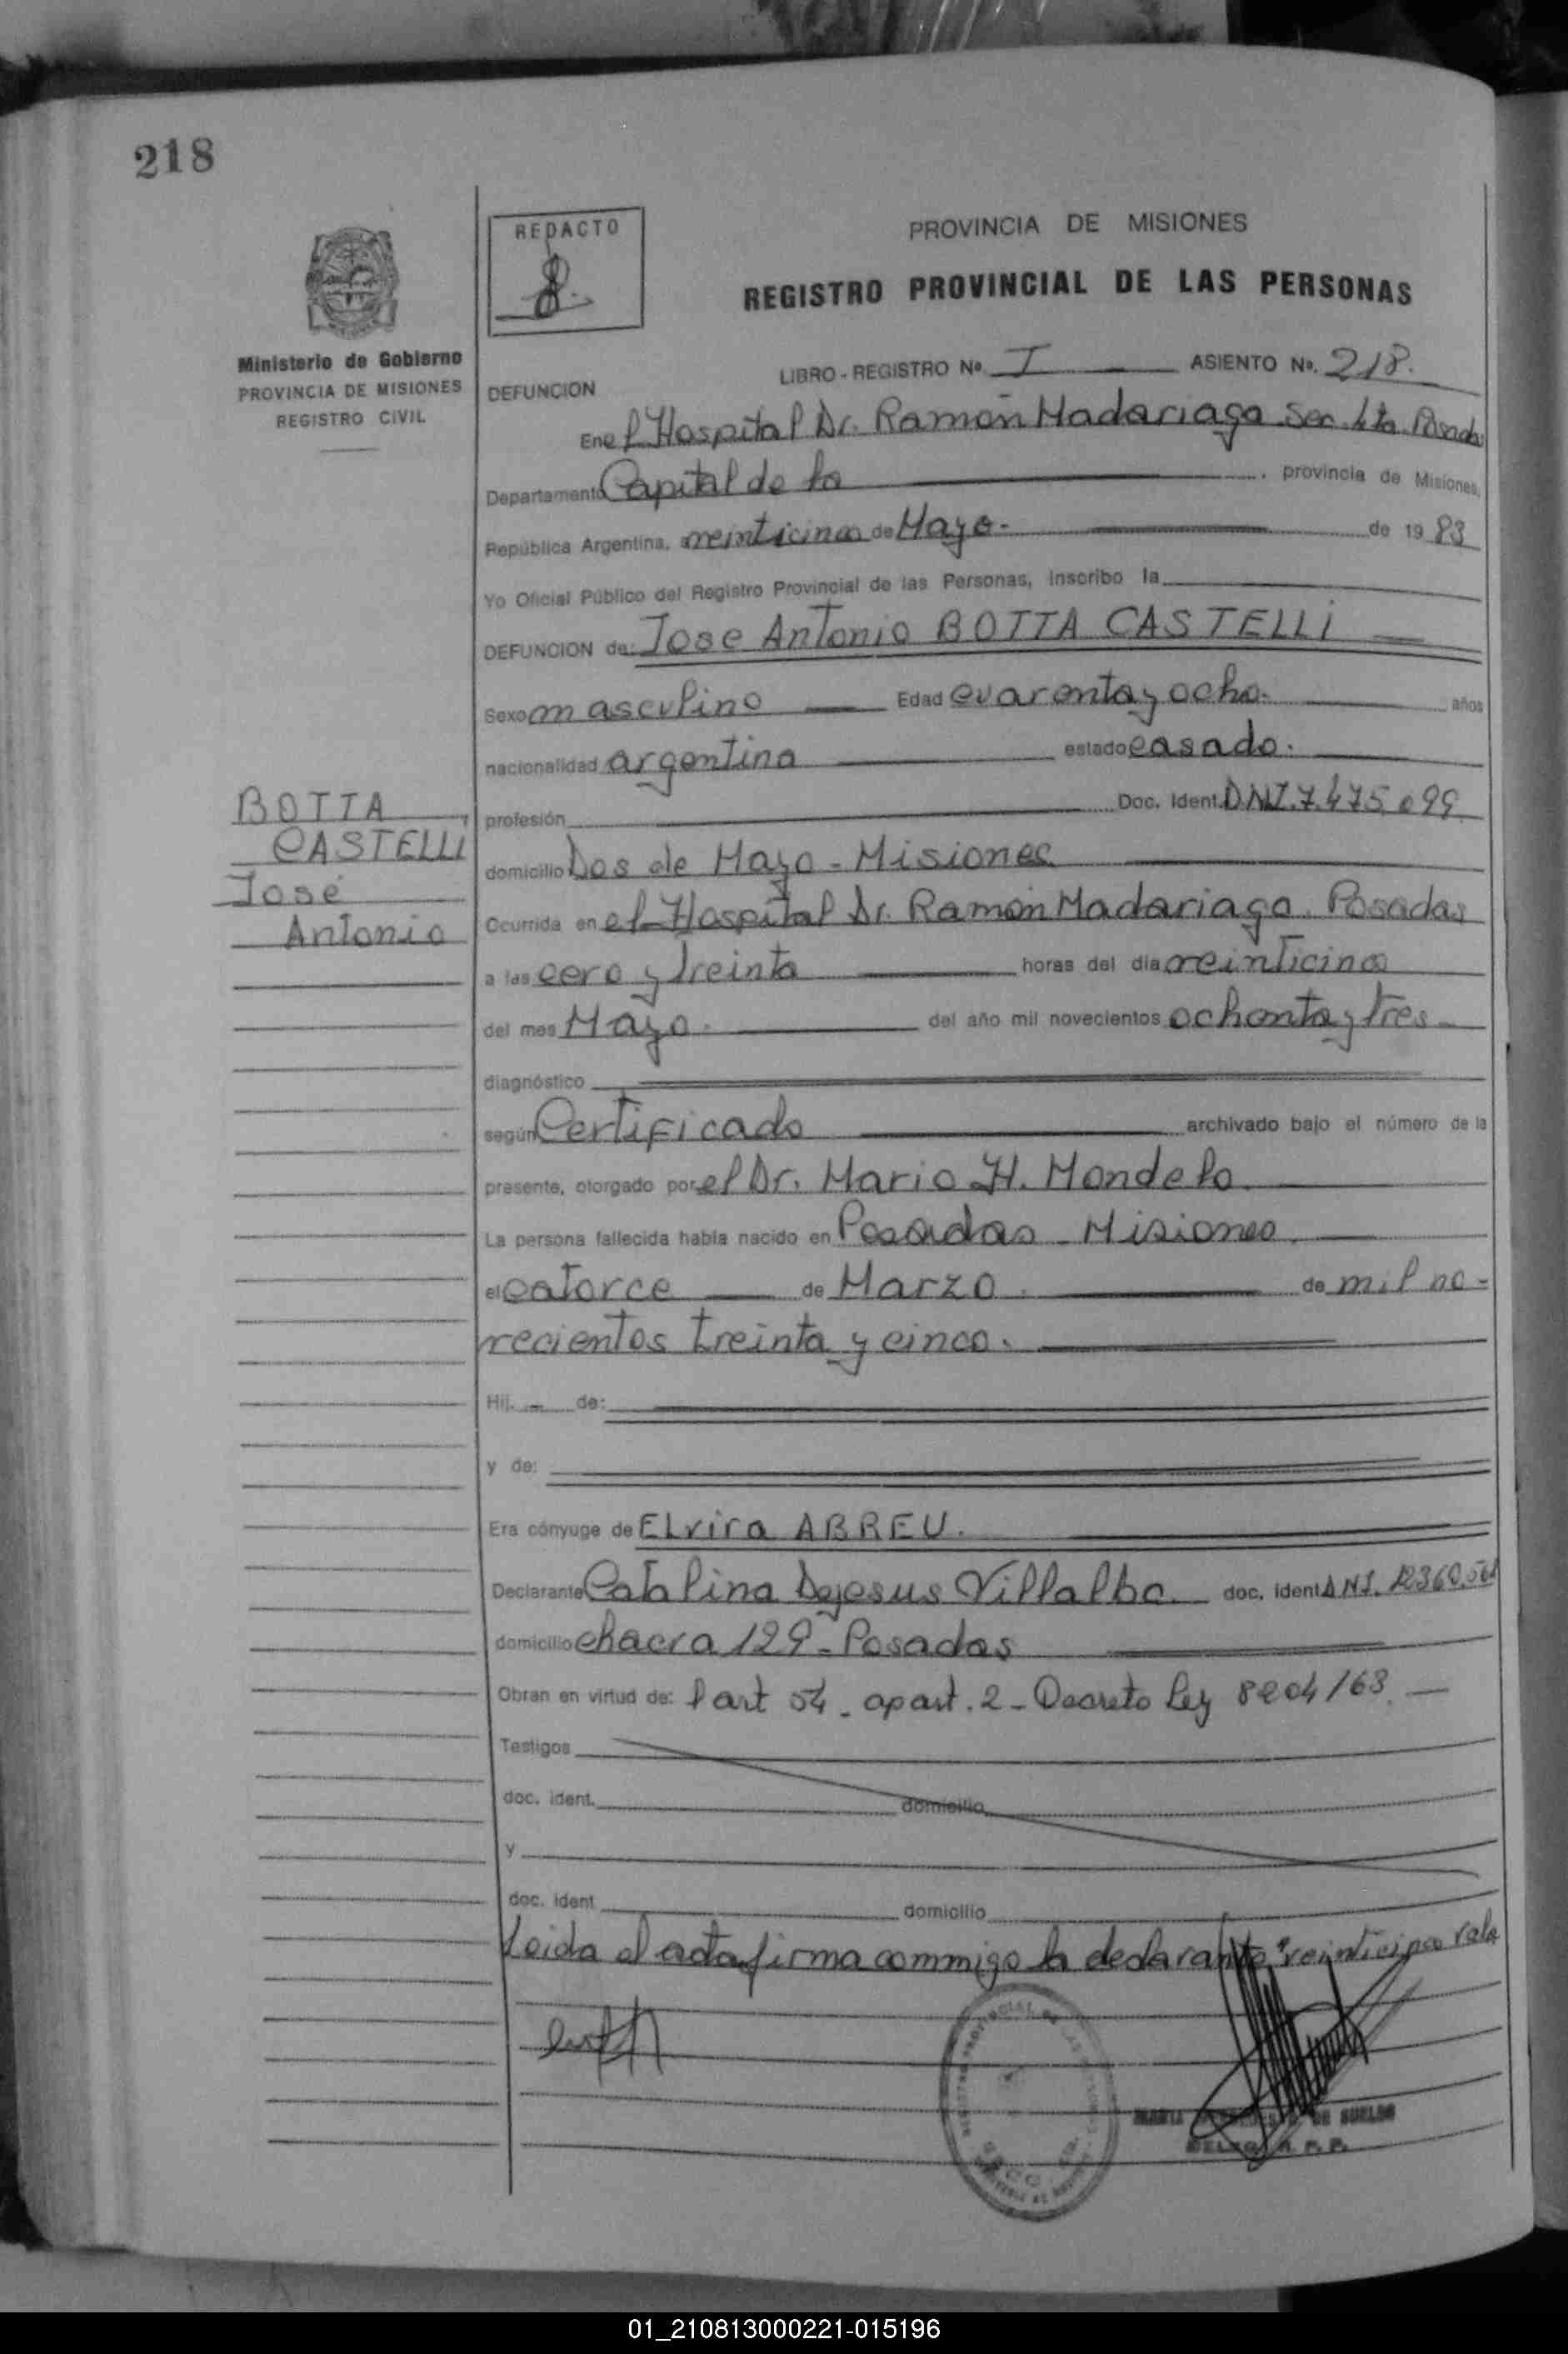 218
REDACTO
PROVINCIA DE MISIONES
REGISTRO PROVINCIAL DE LAS PERSONAS
Ministerio de Gobierno
PROVINCIA DE MISIONES
REGISTRO CIVIL
LIBRO - REGISTRO No. I ASIENTO No. 218.
DEFUNCION
En el Hospital Dr. Ramón Madariaga Sec. 4ta. Posadas
Departamento Capital de la provincia de Misiones,
República Argentina, a veinticinco de Mayo. de 19 83
Yo Oficial Público del Registro Provincial de las Personas, inscribo la
DEFUNCION de: Jose Antonio BOTTA CASTELLI
Sexo masculino Edad cuarenta y ocho. años
nacionalidad argentina estado casado.
profesión Doc. Ident. D.N.I. 7.475.099
BOTTA
CASTELLI
José
Antonio
domicilio Dos de Mayo - Misiones
Ocurrida en el Hospital Dr. Ramón Madariaga. Posadas
a las cero y treinta horas del día veinticinco
del mes Mayo. del año mil novecientos ochenta y tres
diagnóstico
según Certificado archivado bajo el número de la
presente, otorgado por el Dr. Mario H. Mondelo.
La persona fallecida había nacido en Posadas - Misiones.
el catorce de Marzo. de mil no-
vecientos treinta y cinco.
Hij. - de:
y de:
Era cónyuge de ELvira ABREU.
Declarante Catalina Dejesus Villalba. doc. ident. D.N.I.
domicilio chacra 129 - Posadas
Obran en virtud de: l art 54 - apart. 2 - Decreto Ley 8204/63. -
Testigos
doc. ident. domicilio
y
doc. ident domicilio
Leida el acta firma conmigo la declarante, "veinticinco vale
REGISTRO PROVINCIAL DE LAS PERSONAS
MARIA DE SUELDO
R. P. P.
01_210813000221-015196